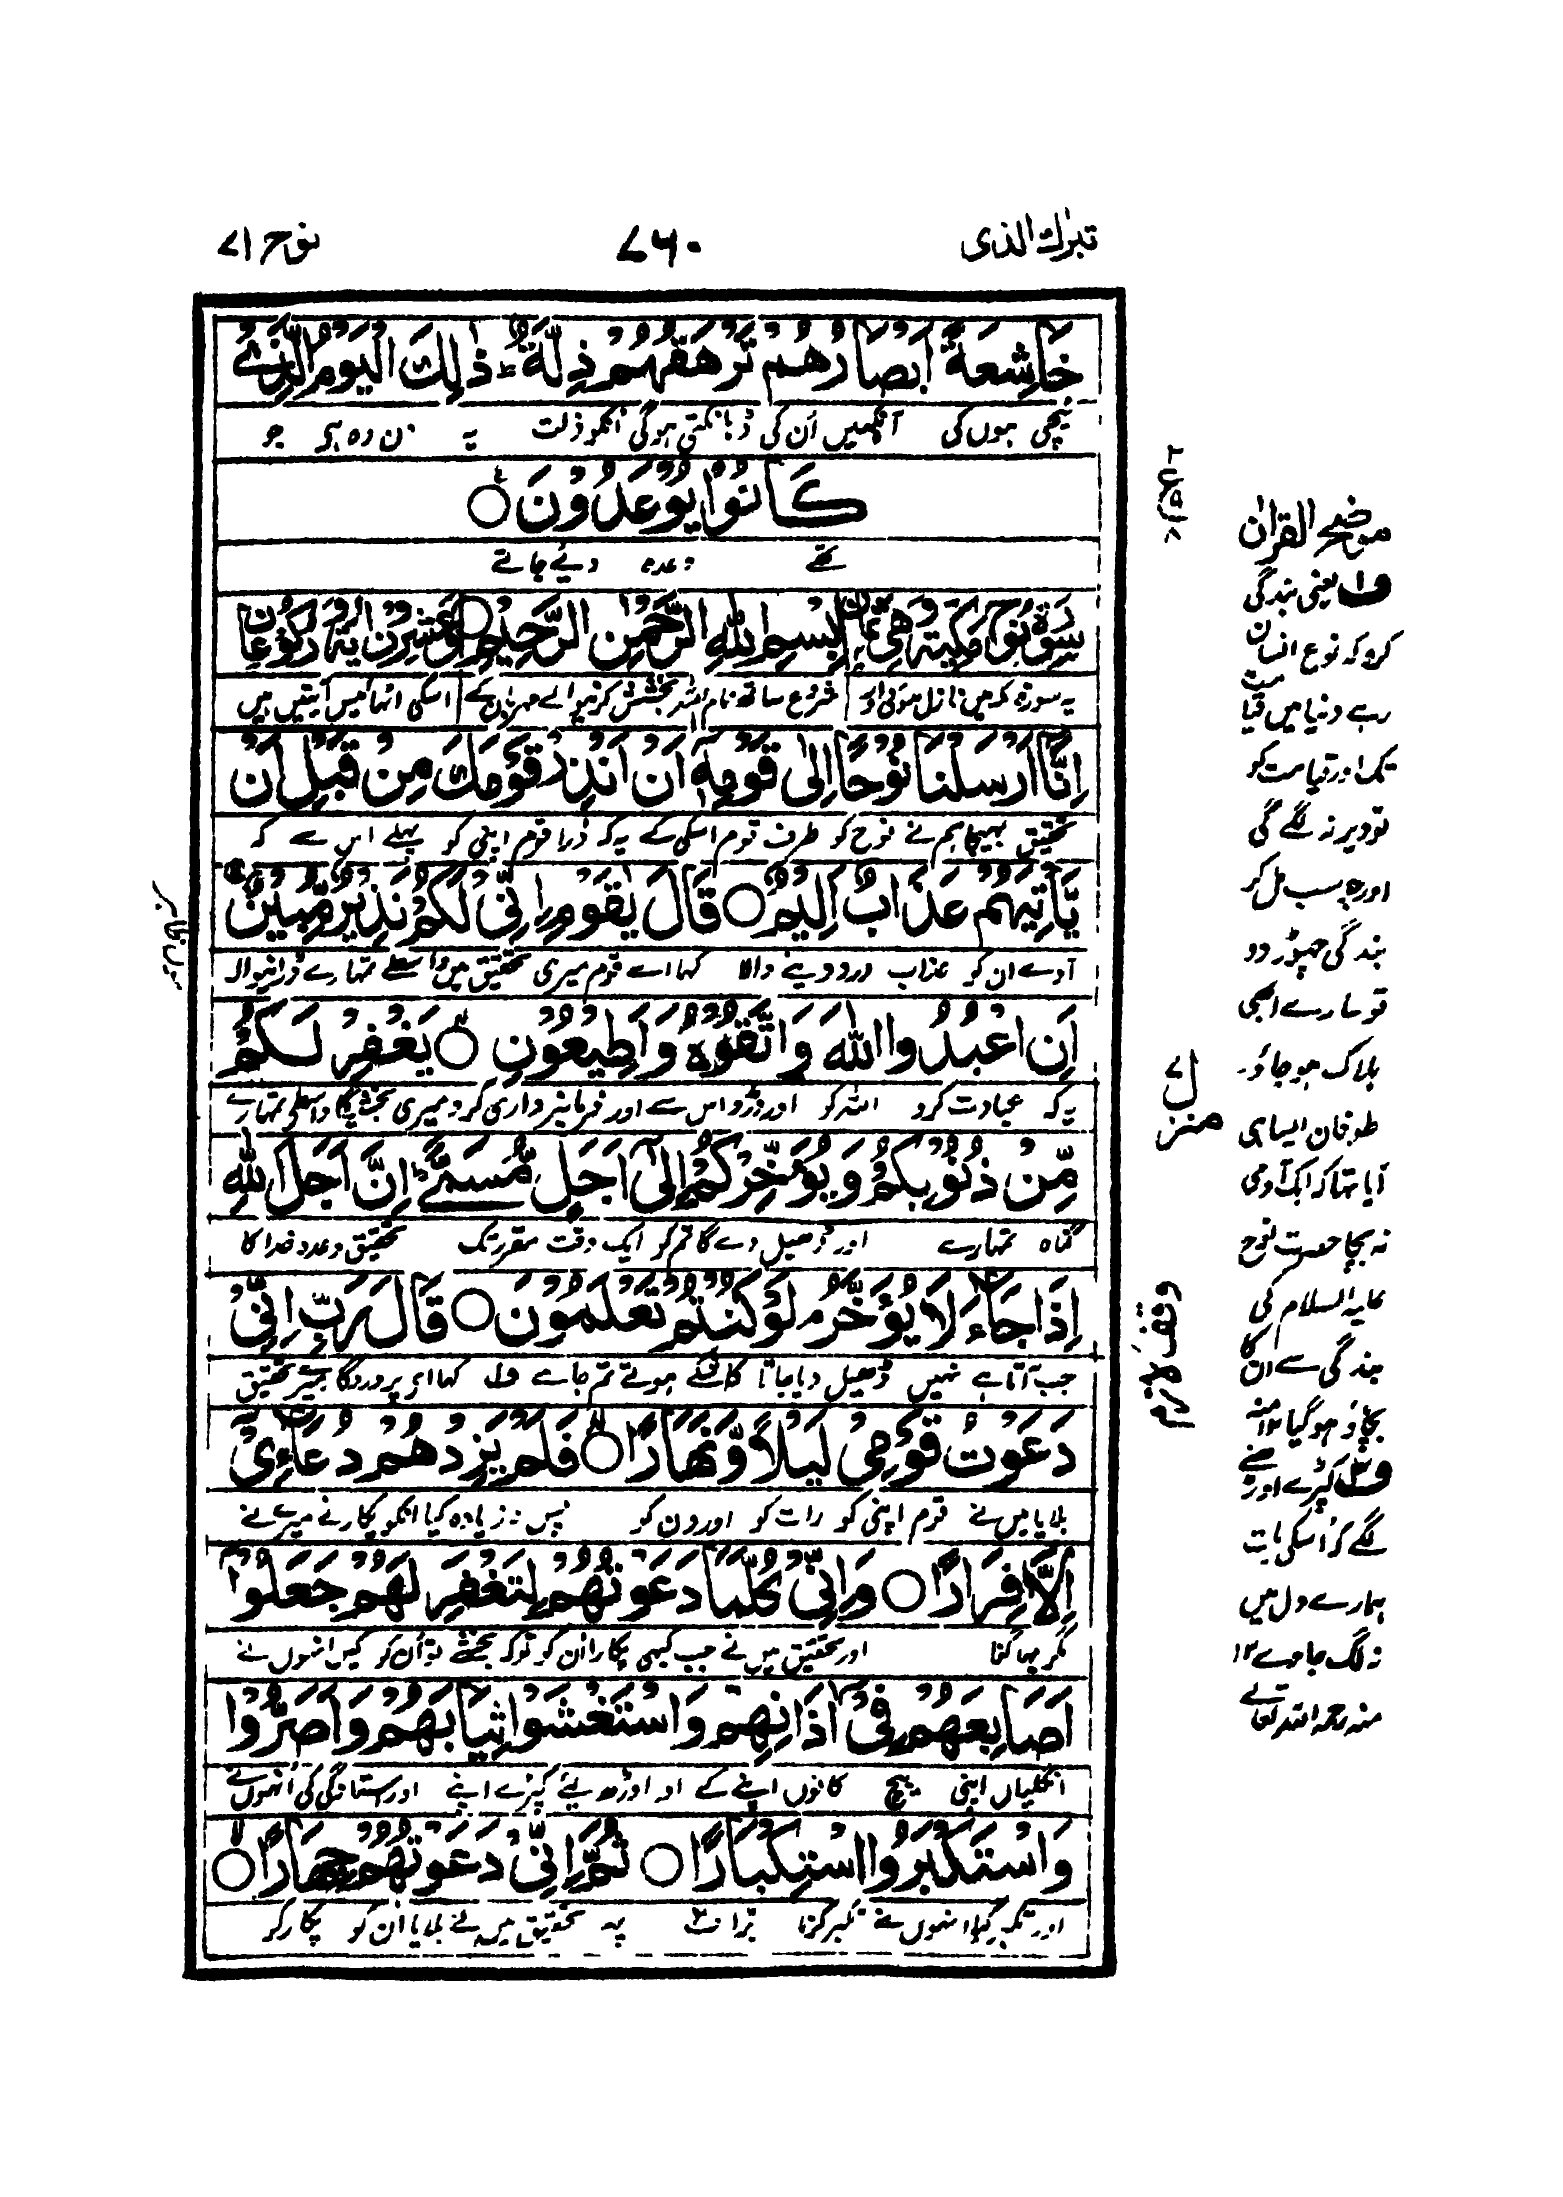 تبٰرك الذی
٧٦٠
نوح ٧١
خَاشِعَةً اَبْصَارُهُمْ تَرْهَقُهُمْ ذِلَّةٌ ؕ ذٰلِكَ الْيَوْمُ الَّذِيْ
نیچی ہوں گی آنکھیں اُن کی ڈہانکتی ہوگی انکو ذلت یہ دن وہ ہے کہ جو
كَانُوْا يُوْعَدُوْنَ ○
تھے وعدہ دیئے جاتے
سُوْرَةُ نُوْحٍ مَكِّيَّةٌ وَّهِيَ ثَمَانٍ بِسْمِ اللّٰهِ الرَّحْمٰنِ الرَّحِيْمِ ○ وَّعِشْرُوْنَ اٰيَةً وَّ رُكُوْعَانِ
یہ سورہ مکہ میں نازل ہوئی اور شروع ساتھ نام اللہ بخشش کرنیوالے مہربان کے اسکی اٹھائیس آیتیں ہیں
اِنَّاۤ اَرْسَلْنَا نُوْحًا اِلٰى قَوْمِهٖۤ اَنْ اَنْذِرْ قَوْمَكَ مِنْ قَبْلِ اَنْ
تحقیق بہیجا ہم نے نوح کو طرف قوم اسکی کے یہ کہ ڈرا قوم اپنی کو پہلے اس سے کہ
يَّاْتِيَهُمْ عَذَابٌ اَلِيْمٌ ○ قَالَ يٰقَوْمِ اِنِّيْ لَكُمْ نَذِيْرٌ مُّبِيْنٌ
آوے ان کو عذاب درد دینے والا کہا اے قوم میری تحقیق میں واسطے تمہارے ڈرانیوالا
ہوں ظاہر
اَنِ اعْبُدُوا اللّٰهَ وَاتَّقُوْهُ وَاَطِيْعُوْنِ ○ يَغْفِرْ لَكُمْ
یہ کہ عبادت کرو اللہ کو اور ڈرو اس سے اور فرمانبرداری کرو میری بخشیگا واسطے تمہارے
مِّنْ ذُنُوْبِكُمْ وَيُؤَخِّرْكُمْ اِلٰۤى اَجَلٍ مُّسَمًّى ؕ اِنَّ اَجَلَ اللّٰهِ
گناہ تمہارے اور ڈھیل دے گا تم کو ایک وقت مقرر تک تحقیق وعدہ خدا کا
اِذَا جَآءَ لَا يُؤَخَّرُ ۘ لَوْ كُنْتُمْ تَعْلَمُوْنَ ○ قَالَ رَبِّ اِنِّيْ
جب آتا ہے نہیں ڈھیل دیا جاتا کاشکے ہوتے تم جانتے ف۱ کہا اے پروردگار میرے تحقیق
دَعَوْتُ قَوْمِيْ لَيْلًا وَّنَهَارًا ○ فَلَمْ يَزِدْهُمْ دُعَآءِيْۤ
بلایا میں نے قوم اپنی کو رات کو اور دن کو پس نہ زیادہ کیا انکو پکارنے میرے نے
اِلَّا فِرَارًا ○ وَاِنِّيْ كُلَّمَا دَعَوْتُهُمْ لِتَغْفِرَ لَهُمْ جَعَلُوْۤا
مگر بہاگنا اور تحقیق میں نے جب کبہی پکارا اُن کو توکہ بخشے تو اُن کو کیں انہوں نے
اَصَابِعَهُمْ فِيْۤ اٰذَانِهِمْ وَاسْتَغْشَوْا ثِيَابَهُمْ وَاَصَرُّوْا
انگلیاں اپنی بیچ کانوں اپنے کے اور اوڑھ لیئے کپڑے اپنے اور ستانگی کی اُنہوں نے
وَاسْتَكْبَرُوا اسْتِكْبَارًا ○ ثُمَّ اِنِّيْ دَعَوْتُهُمْ جِهَارًا ○
اور تکبر کیا انہوں نے تکبر کرنا بڑا ف۲ پہر تحقیق میں نے بلایا اُن کو پکار کر
منزل ٧
وقف لازم
موضح القرآن
ف۱ یعنی بندگی
کرو کہ نوع انسان
رہے دنیا میں قیامت
تک اور قیامت کو
تو دیر نہ لگے گی
اور جو سب مل کر
بندگی چھوڑ دو
تو سارے ابھی
ہلاک ہو جاؤ۔
طوفان ایسا ہی
آیا تہا کہ ایک آدمی
نہ بچا حضرت نوح
علیہ السلام کی
بندگی سے ان کا
بچاؤ ہو گیا ١٢ منہ
ف۲ کپڑے اوڑھنے
لگے کہ اسکی بات
ہمارے دل میں
نہ لگ جاوے ١٢
منہ رحمہ اللہ تعالےٰ